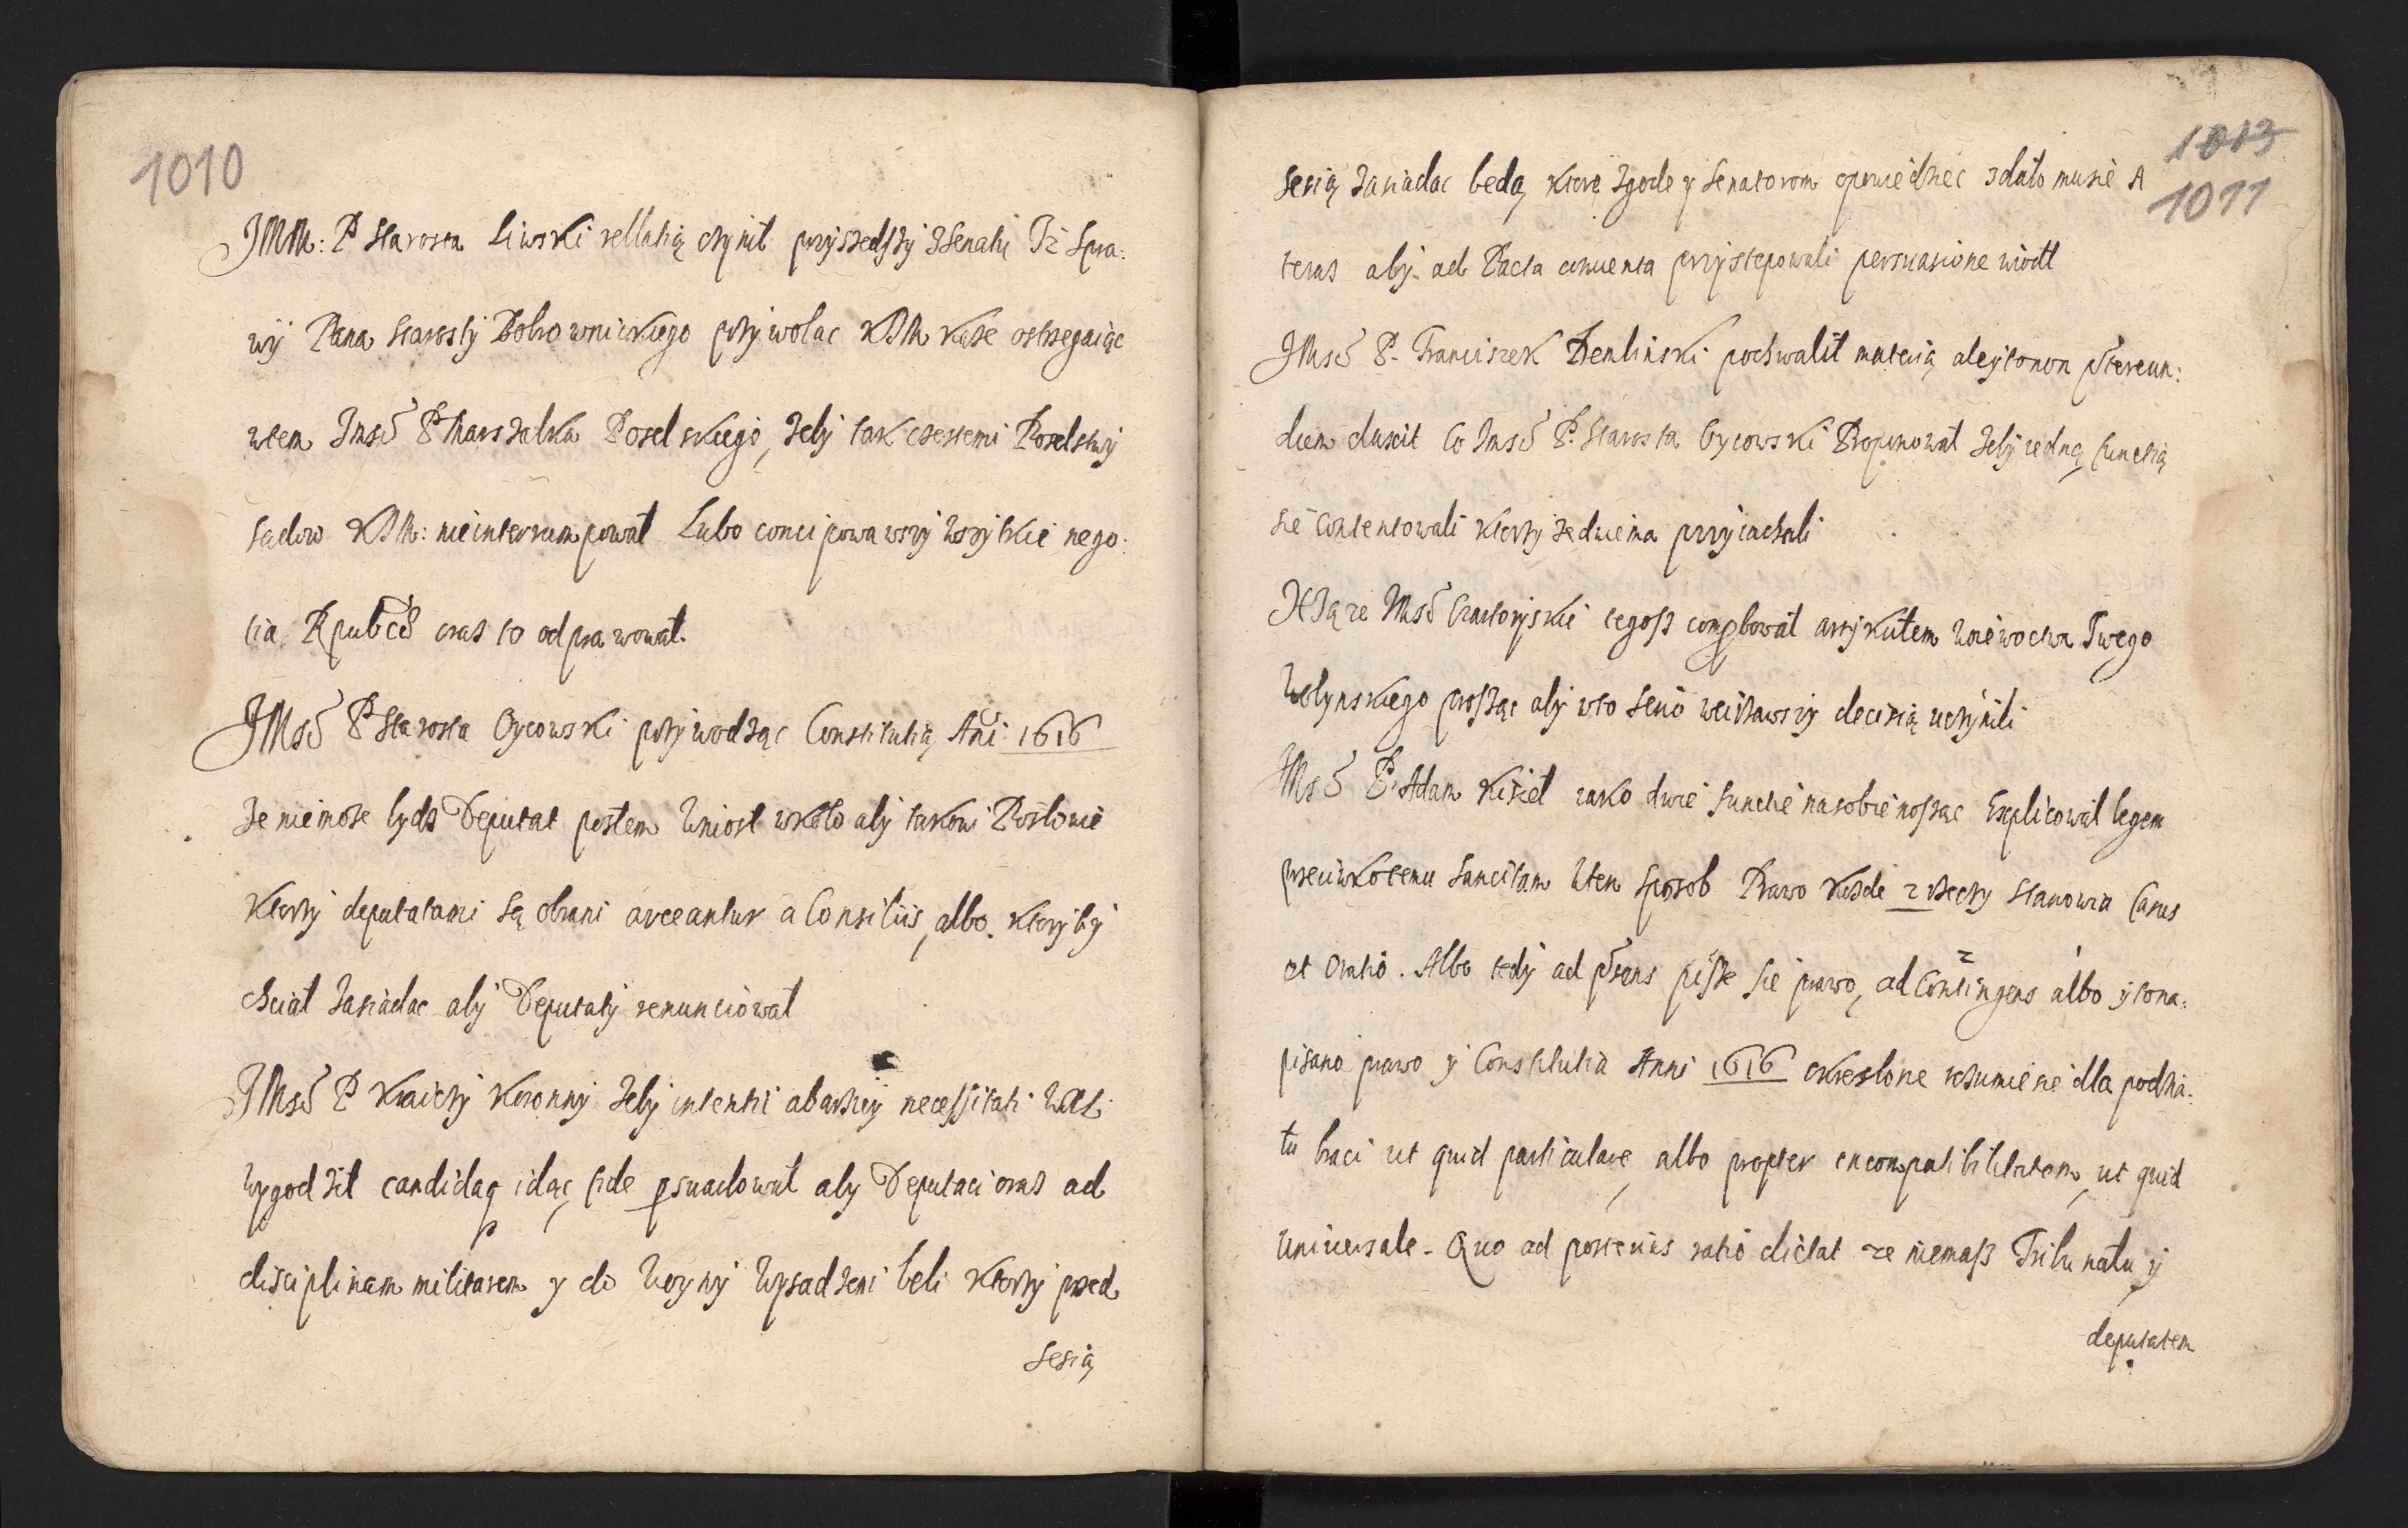 1010
JMM: P Starosta Liwski rellatią czynił przyszedszy zSenatu Iż spra:
wÿ Pana Starosty Bobrownickiego przywolac KJM każe ostrzegaiąc
wtem Jmsci P Marszalka Poselskiego, żeby tak czestemi Poselstwy
sadow KJM: nieinterrumpował Lubo concipowawszy wszytkie nego:
tia Rpubcæ oraz to odprawował.
JMsci P Starosta Oycowski przywodząc Constitutią Ani 1616
Ze niemoże bydz Deputat posłem Wniosł wkoło aby takowi Posłowie
Ktorzy deputatami są obrani arceantur a Consiliis, albo. Ktoryby
chciał Zasiadac aby Deputaty renunciował
JMsci P Kraiczy Koronny żeby
wygodził candida idąc fide psuadował aby Deputaci oraz ad
disciplinam militarem y do Woyny Wysadzeni beli Ktorzy przed
Sesią
1013
1011
Sesią Zasiadac będą, Ktorą Zgodę y Senatorom opowiedziec zdało musie A
teras aby ad Pacta conuenta przystępowali persuasione wiodł
JMsci P. Franciszek Dembinski pochwalił materią aleyto non ptereun:
dum duxit Co Jmsci P. Starosta Oycowski Proponował Zeby iedną functią
się Contentowali Ktorzy zedwiema przyiachali
Xsiąże JMsci Czartoryskie tegosz comprobował artykułem Woiewoctwa Swego
Wołynskiego prosząc aby wto serio weirzawszy decisią uczynili
JMsci P. Adam Kisiel iako dwie functie nasobie nosząc Explicował legem
przeciwkotemu sancitam Wten sposob Prawo każde 2 rzeczy stanowia Casus
et Ratio. Albo tedy ad psens pisze się prawo, ad Contingens albo yto na:
pisano prawo y Constitutia Anni 1616 okreslone rozumiene dla podzia:
łu braci ut quid particulare, albo propter incompatibilitatem, ut quid
Uniuersale. Quo ad posterius ratio dictat ze niemasz Tribunału y
deputatem